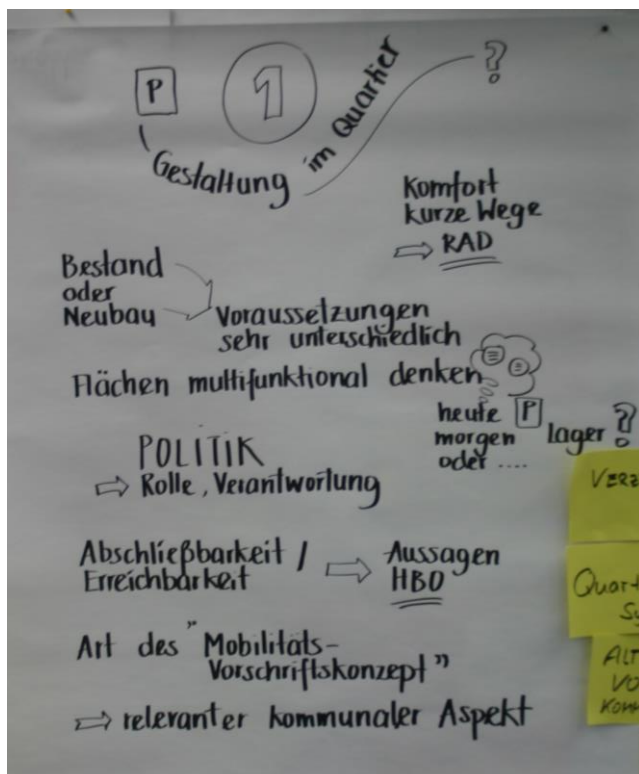 P 1 ?
Gestaltung im Quartier
Komfort
kurze Wege
⇨ RAD
Bestand
oder
Neubau
Voraussetzungen
sehr unterschiedlich
Flächen multifunktional denken
heute P
morgen lager ?
oder ....
POLITIK
⇨ Rolle, Verantwortung
Abschließbarkeit /
Erreichbarkeit
⇨ Aussagen
HBO
Art des "Mobilitäts-
Vorschriftskonzept"
⇨ relevanter kommunaler Aspekt